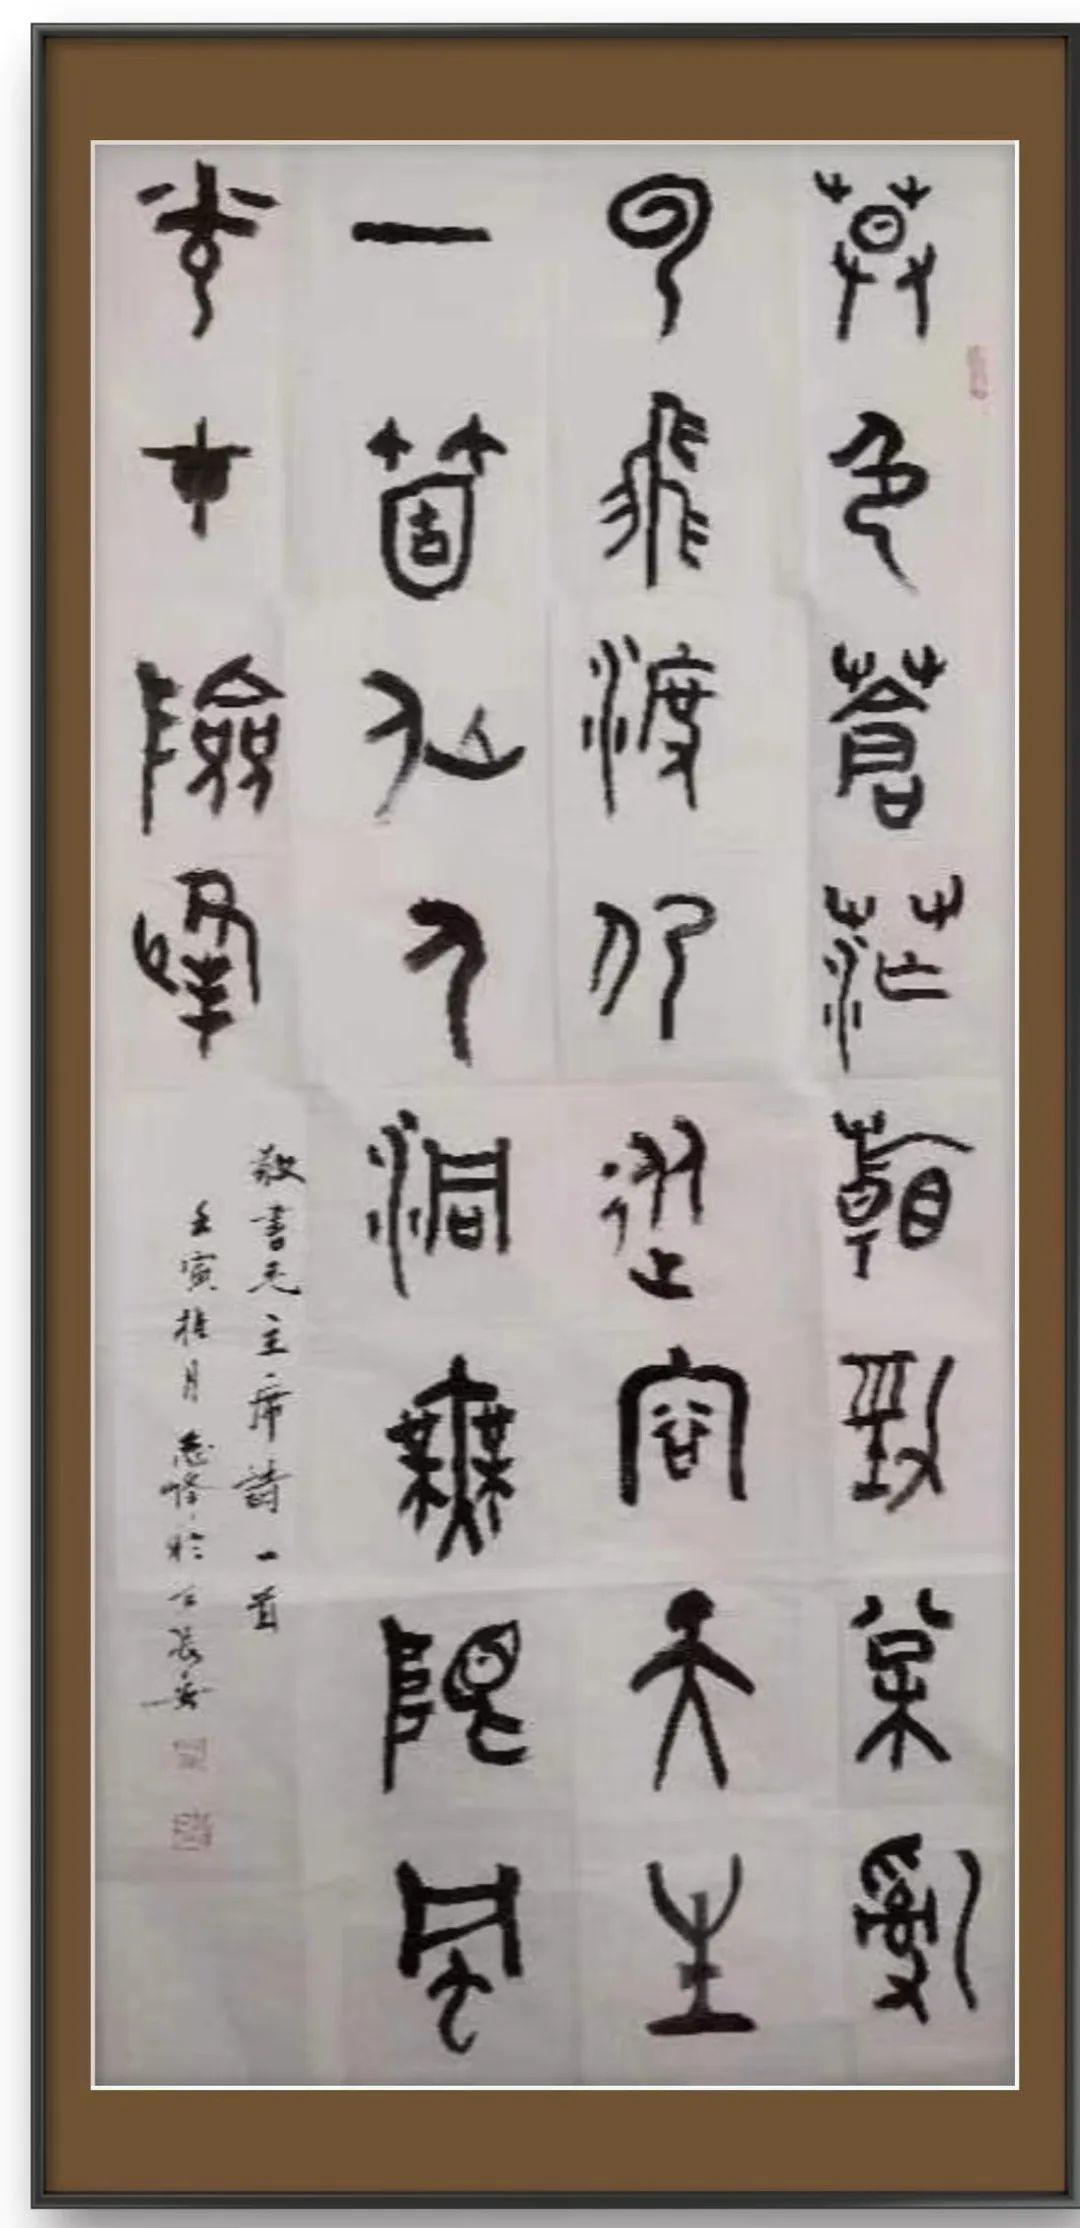 莫色蒼茫看勁松亂
云飛渡仍從容天生
一箇仙人洞無限風
光在險峰
敬書毛主席詩一首
壬寅桂月於古長安